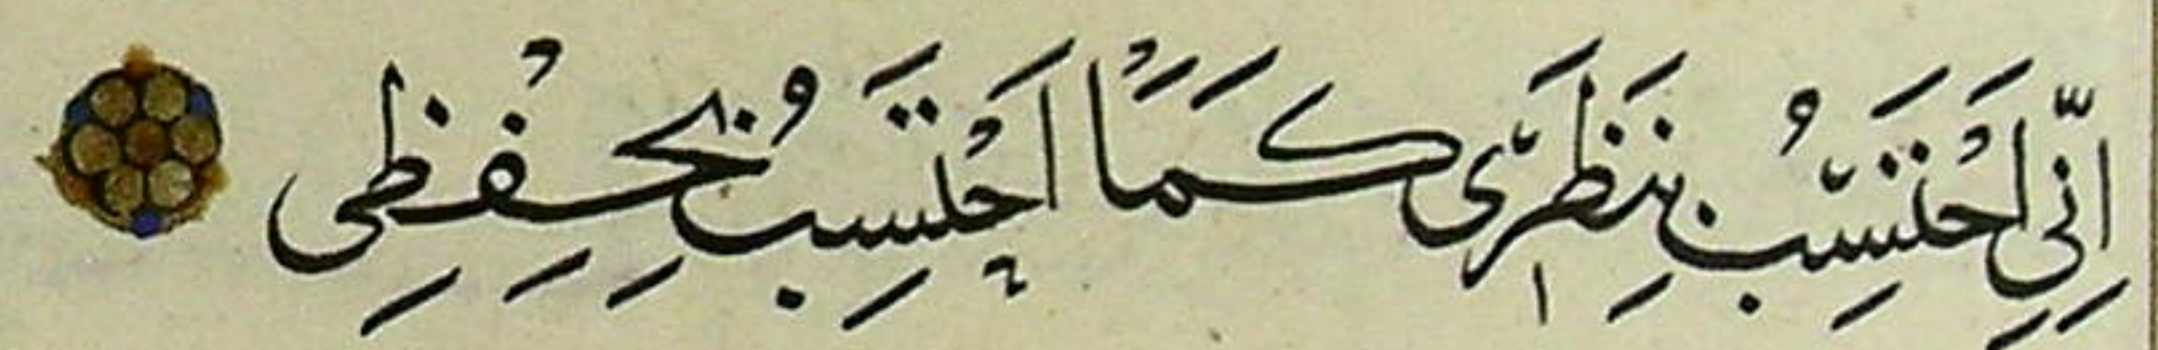 اِنّي اَحْتَسِبُ بِنَظَرَي كَمَا اَحْتَسِبُ بِحِفْظِي